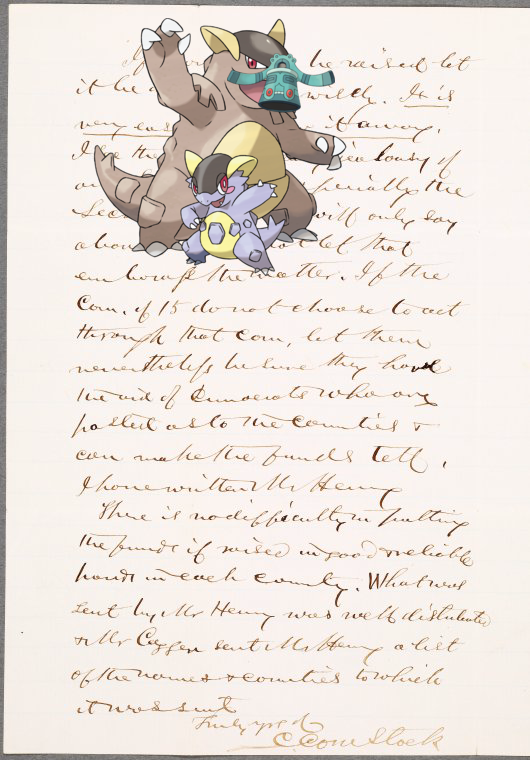 If be raised let
it be with. It is
very eas it away.
I jealousy if
especially the
Sec will only say
abou not let that
embarass the matter. If the
Com. of 15 do not choose to act
through that Com, let them
nevertheless be sure they have
the aid of Democrats who are
posted as to the counties &
can make the funds tell.
I have written Mr Henry
There is no difficulty in putting
the funds if raised in good & reliable
hands in each county. What was
sent by Mr Henry was well distributed
& Mr sent Mr Henry a list
of the names & counties to which
it was sent
Truly yrs
C. Comstock